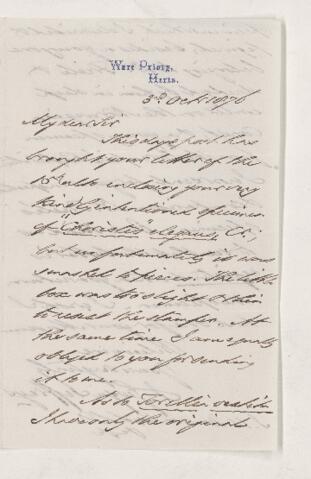 Ware Priory,
Herts.
3rd Oct 1876
My dear Sir
This day's post has
brought your letter of the
15th ulto enclosing your very
kindly intentioned specimen
of "Choristes" elegans, Cr;
but unfortunately it was
smashed to pieces. The little
box was too slight & thin
to resist the stamper. At
the same time I am equally
obliged to you for sending
it to me.
As to Torellia vestita
I have only the original